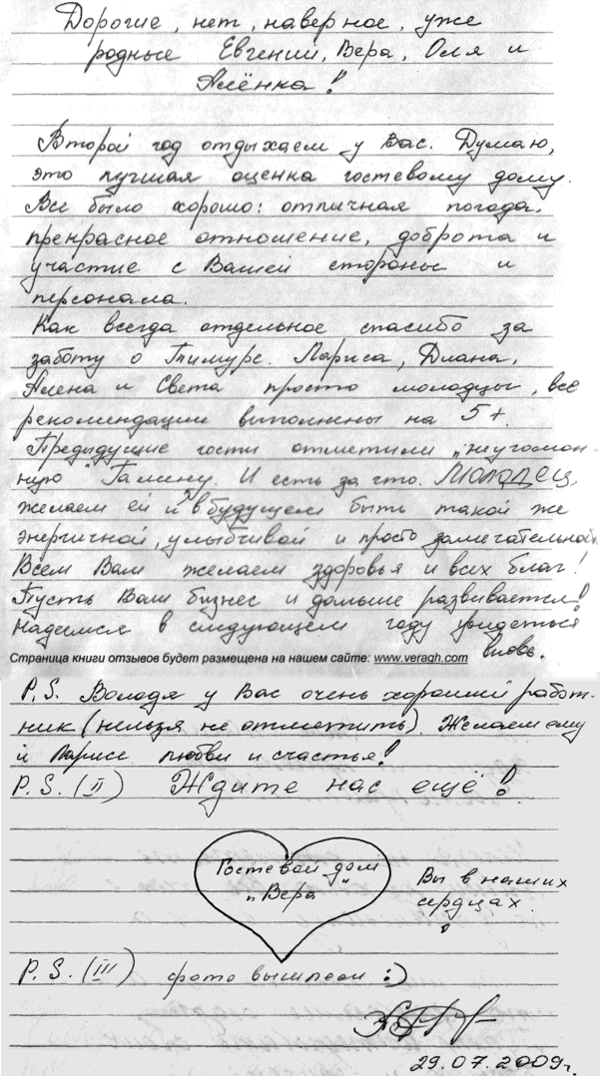 Дорогие, нет, наверное, уже
родные Евгений, Вера, Оля и
Алёнка!
Второй год отдыхаем у Вас. Думаю,
это лучшая оценка гостевому дому.
Все было хорошо: отличная погода,
прекрасное отношение, доброта и
участие с Вашей стороны и
персонала.
Как всегда отдельное спасибо за
заботу о Тимуре. Лариса, Диана,
Алена и Света просто молодцы, все
рекомендации выполнены на 5+.
Предыдущие гости отметили „неугомон-
ную" Галину. И есть за что. МОЛОДЕЦ,
желаем ей и в будущем быть такой же
энергичной, улыбчивой и просто замечательной.
Всем Вам желаем здоровья и всех благ!
Пусть Ваш бизнес и дальше развивается!
Надеемся в следующем году увидеться
вновь.
Страница книги отзывов будет размещена на нашем сайте: www.veragh.com
P.S. Володя у Вас очень хороший работ-
ник (нельзя не отметить). Желаем ему
и Ларисе любви и счастья!
P.S. (II) Ждите нас ещё!
Гостевой дом
„Вера"
Вы в наших
сердцах!
P.S. (III) фото вышлем :)
29.07.2009г.